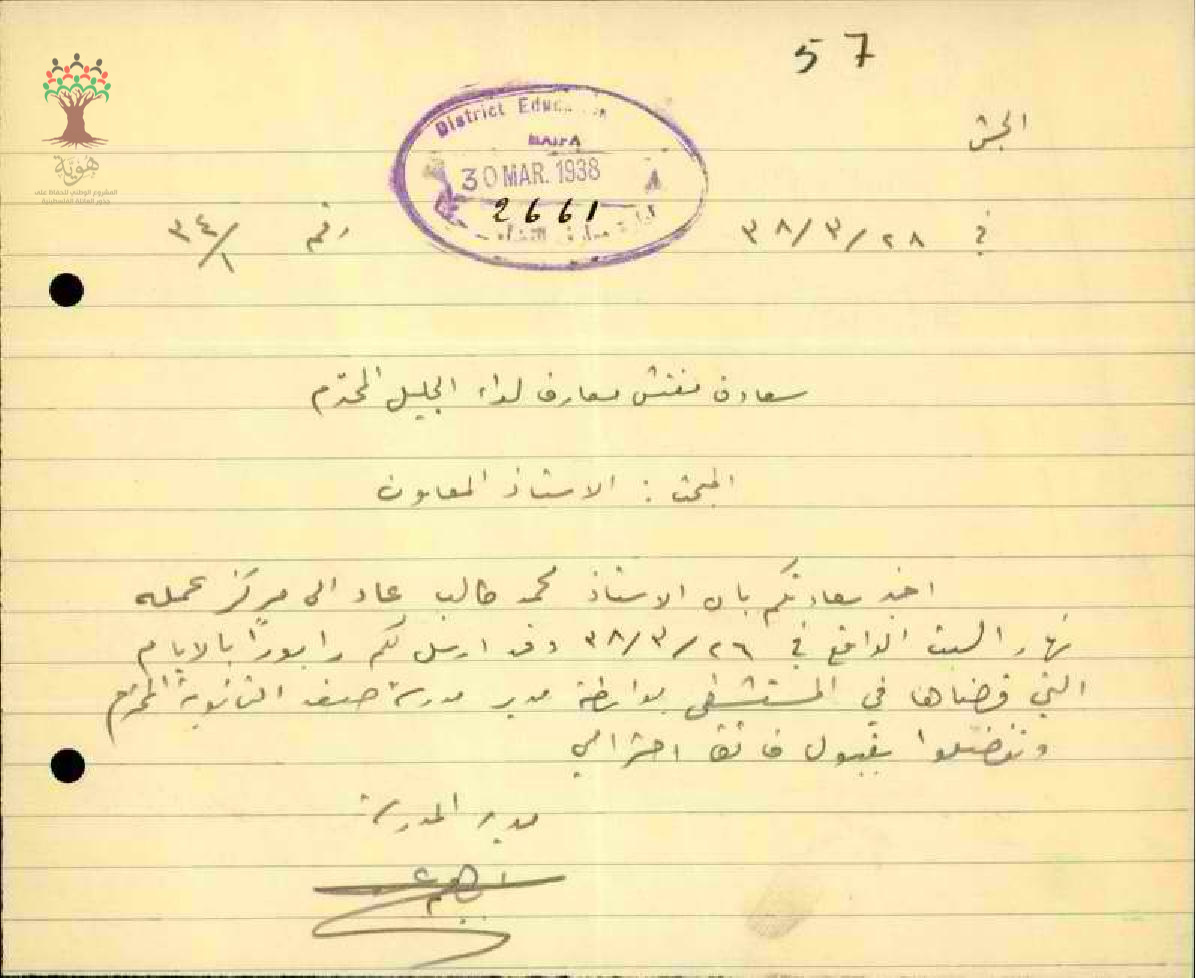 57
هوية
المشروع الوطني للحفاظ على
جذور العائلة الفلسطينية
District Educa
HAIFA
30 MAR. 1938
2661
الجش
في ٢٨/٣/٣٨
رقم ٣٤/١
سعادة مفتش معارف لواء الجليل المحترم
المبحث : الاستاذ المعاون
اخبر سعادتكم بان الاستاذ محمد طالب عاد الى مركز عمله
نهار السبت الواقع في ٢٦/٣/٣٨ وقد ارسل لكم رابورًا بالايام
التي قضاها في المستشفى بواسطة مدير مدرسة صفد الثانوية المحترم
وتفضلوا بقبول فائق احترامي
مدير المدرسة